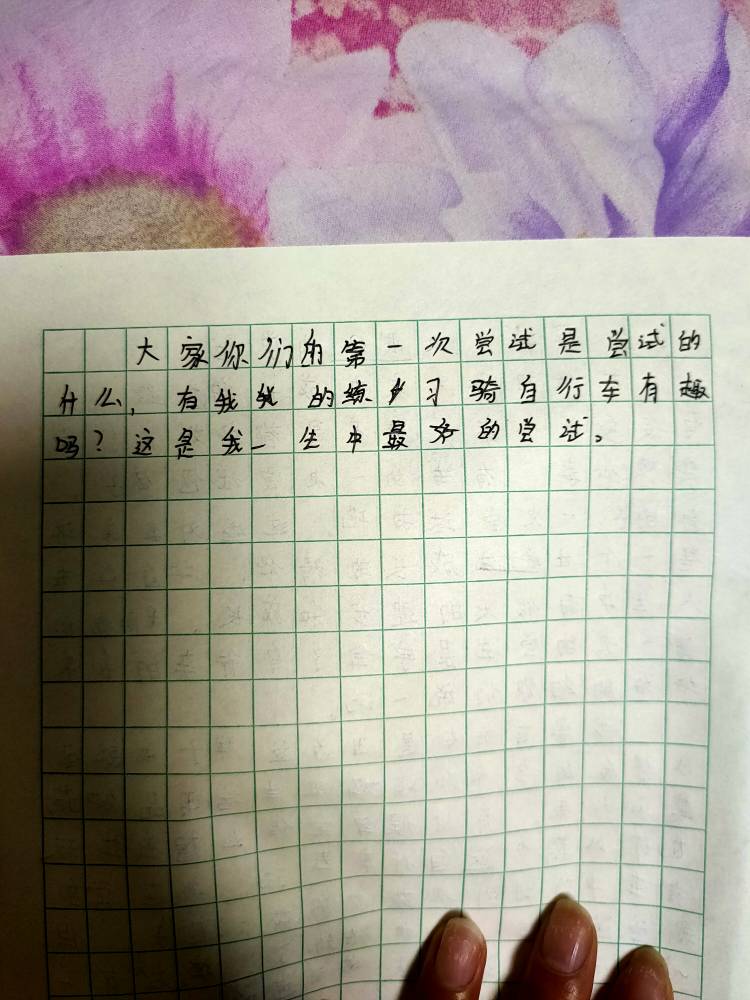 大家你们的第一次尝试是尝试的
什么,有我的练习骑自行车有趣
吗?这是我一生中最的尝试。